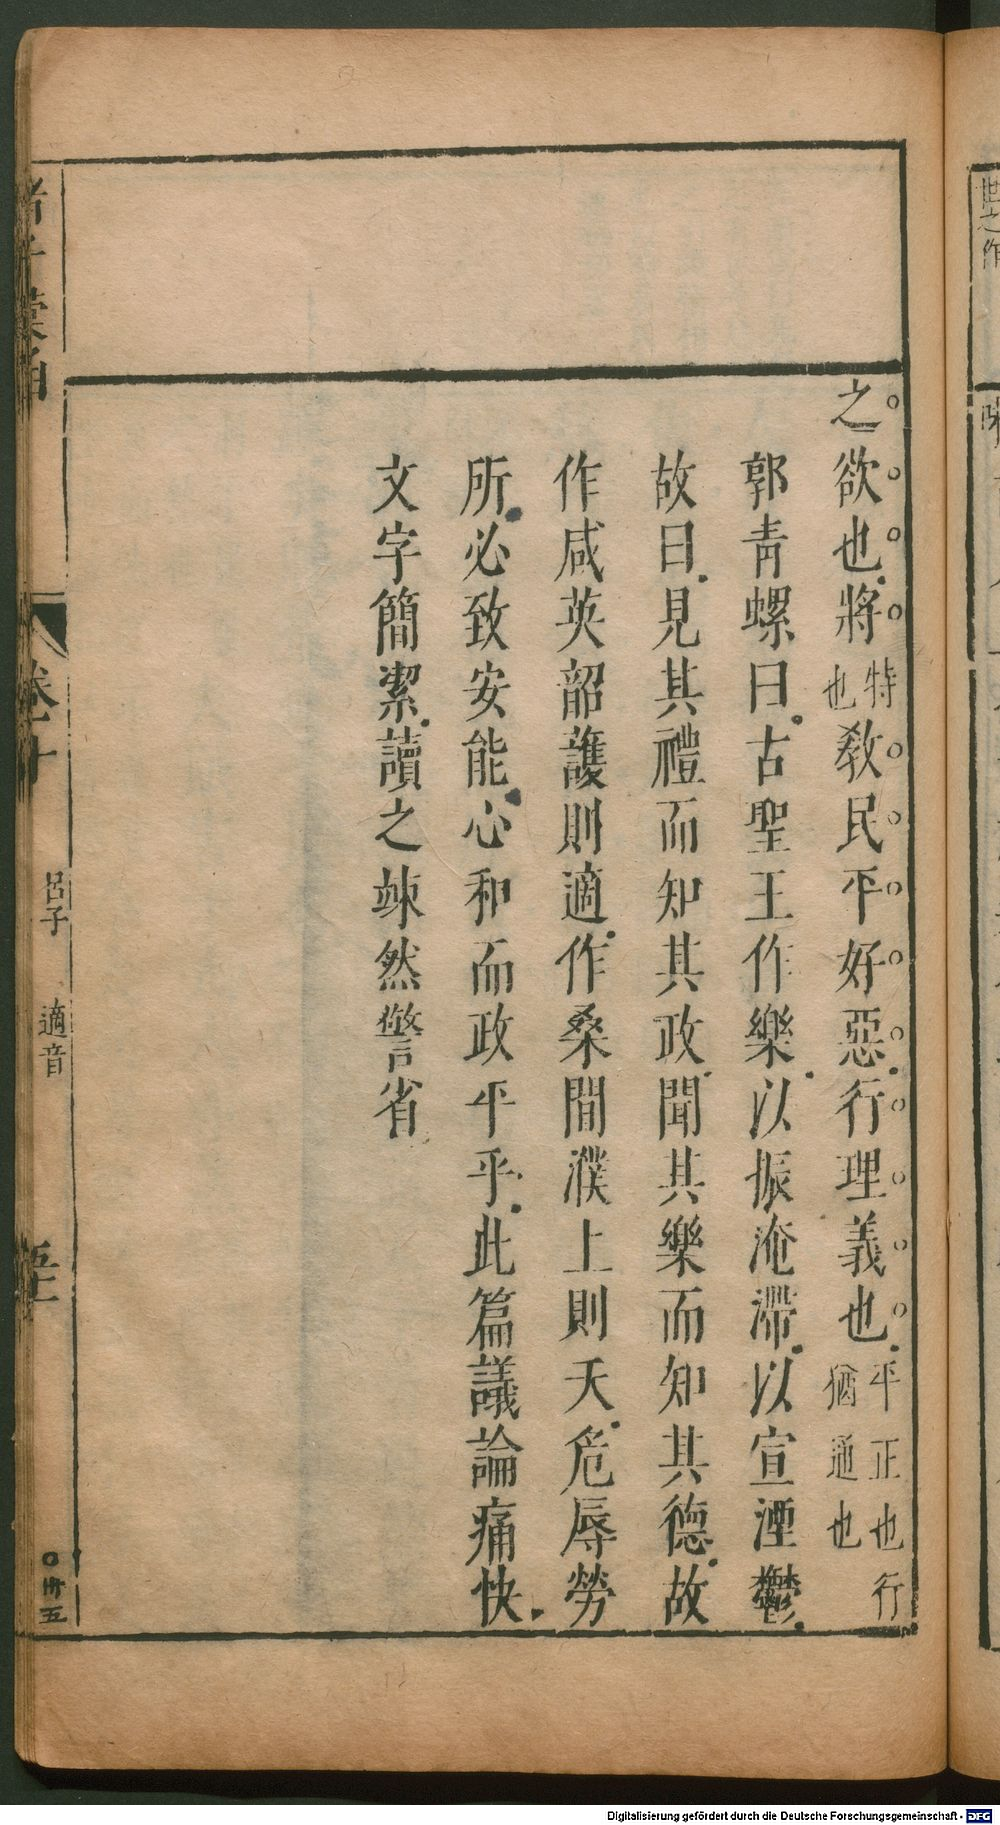 之欲也將特也教民平好惡行理義也平正也行猶通也
郭青螺曰古聖王作樂以振淹滯以宣湮鬱
故曰見其禮而知其政聞其樂而知其德故
作咸英韶護則適作桑間濮上則天危辱勞
所必致安能心和而政平乎此篇議論痛快
文字簡潔讀之竦然警省
卷十 呂子 適音
〇卅五
世之作
Digitalisierung gefördert durch die Deutsche Forschungsgemeinschaft - DFG